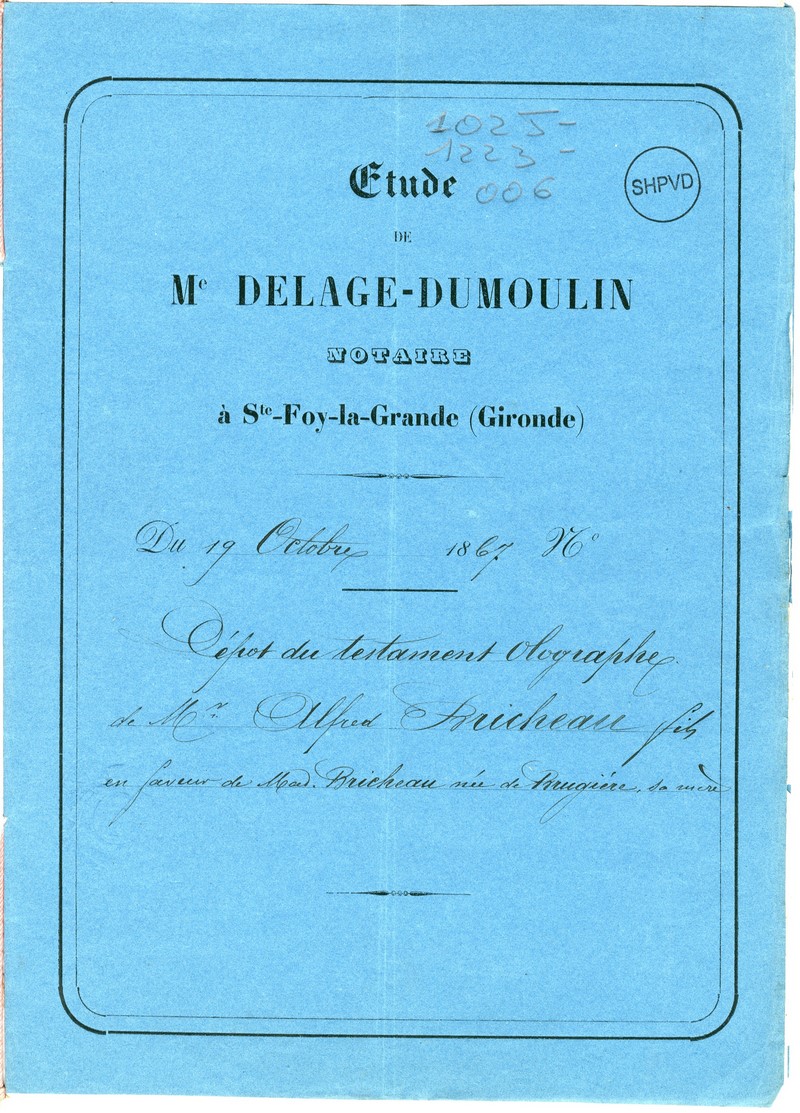 1025-
1223-
006
SHPVD
Etude
DE
Me DELAGE-DUMOULIN
NOTAIRE
à Ste-Foy-la-Grande (Gironde)
Du 19 Octobre 1867 No
Dépot du testament Olographe
de Mr Alfred Bricheau fils
en faveur de Mad. Bricheau née de Brugière, sa mère